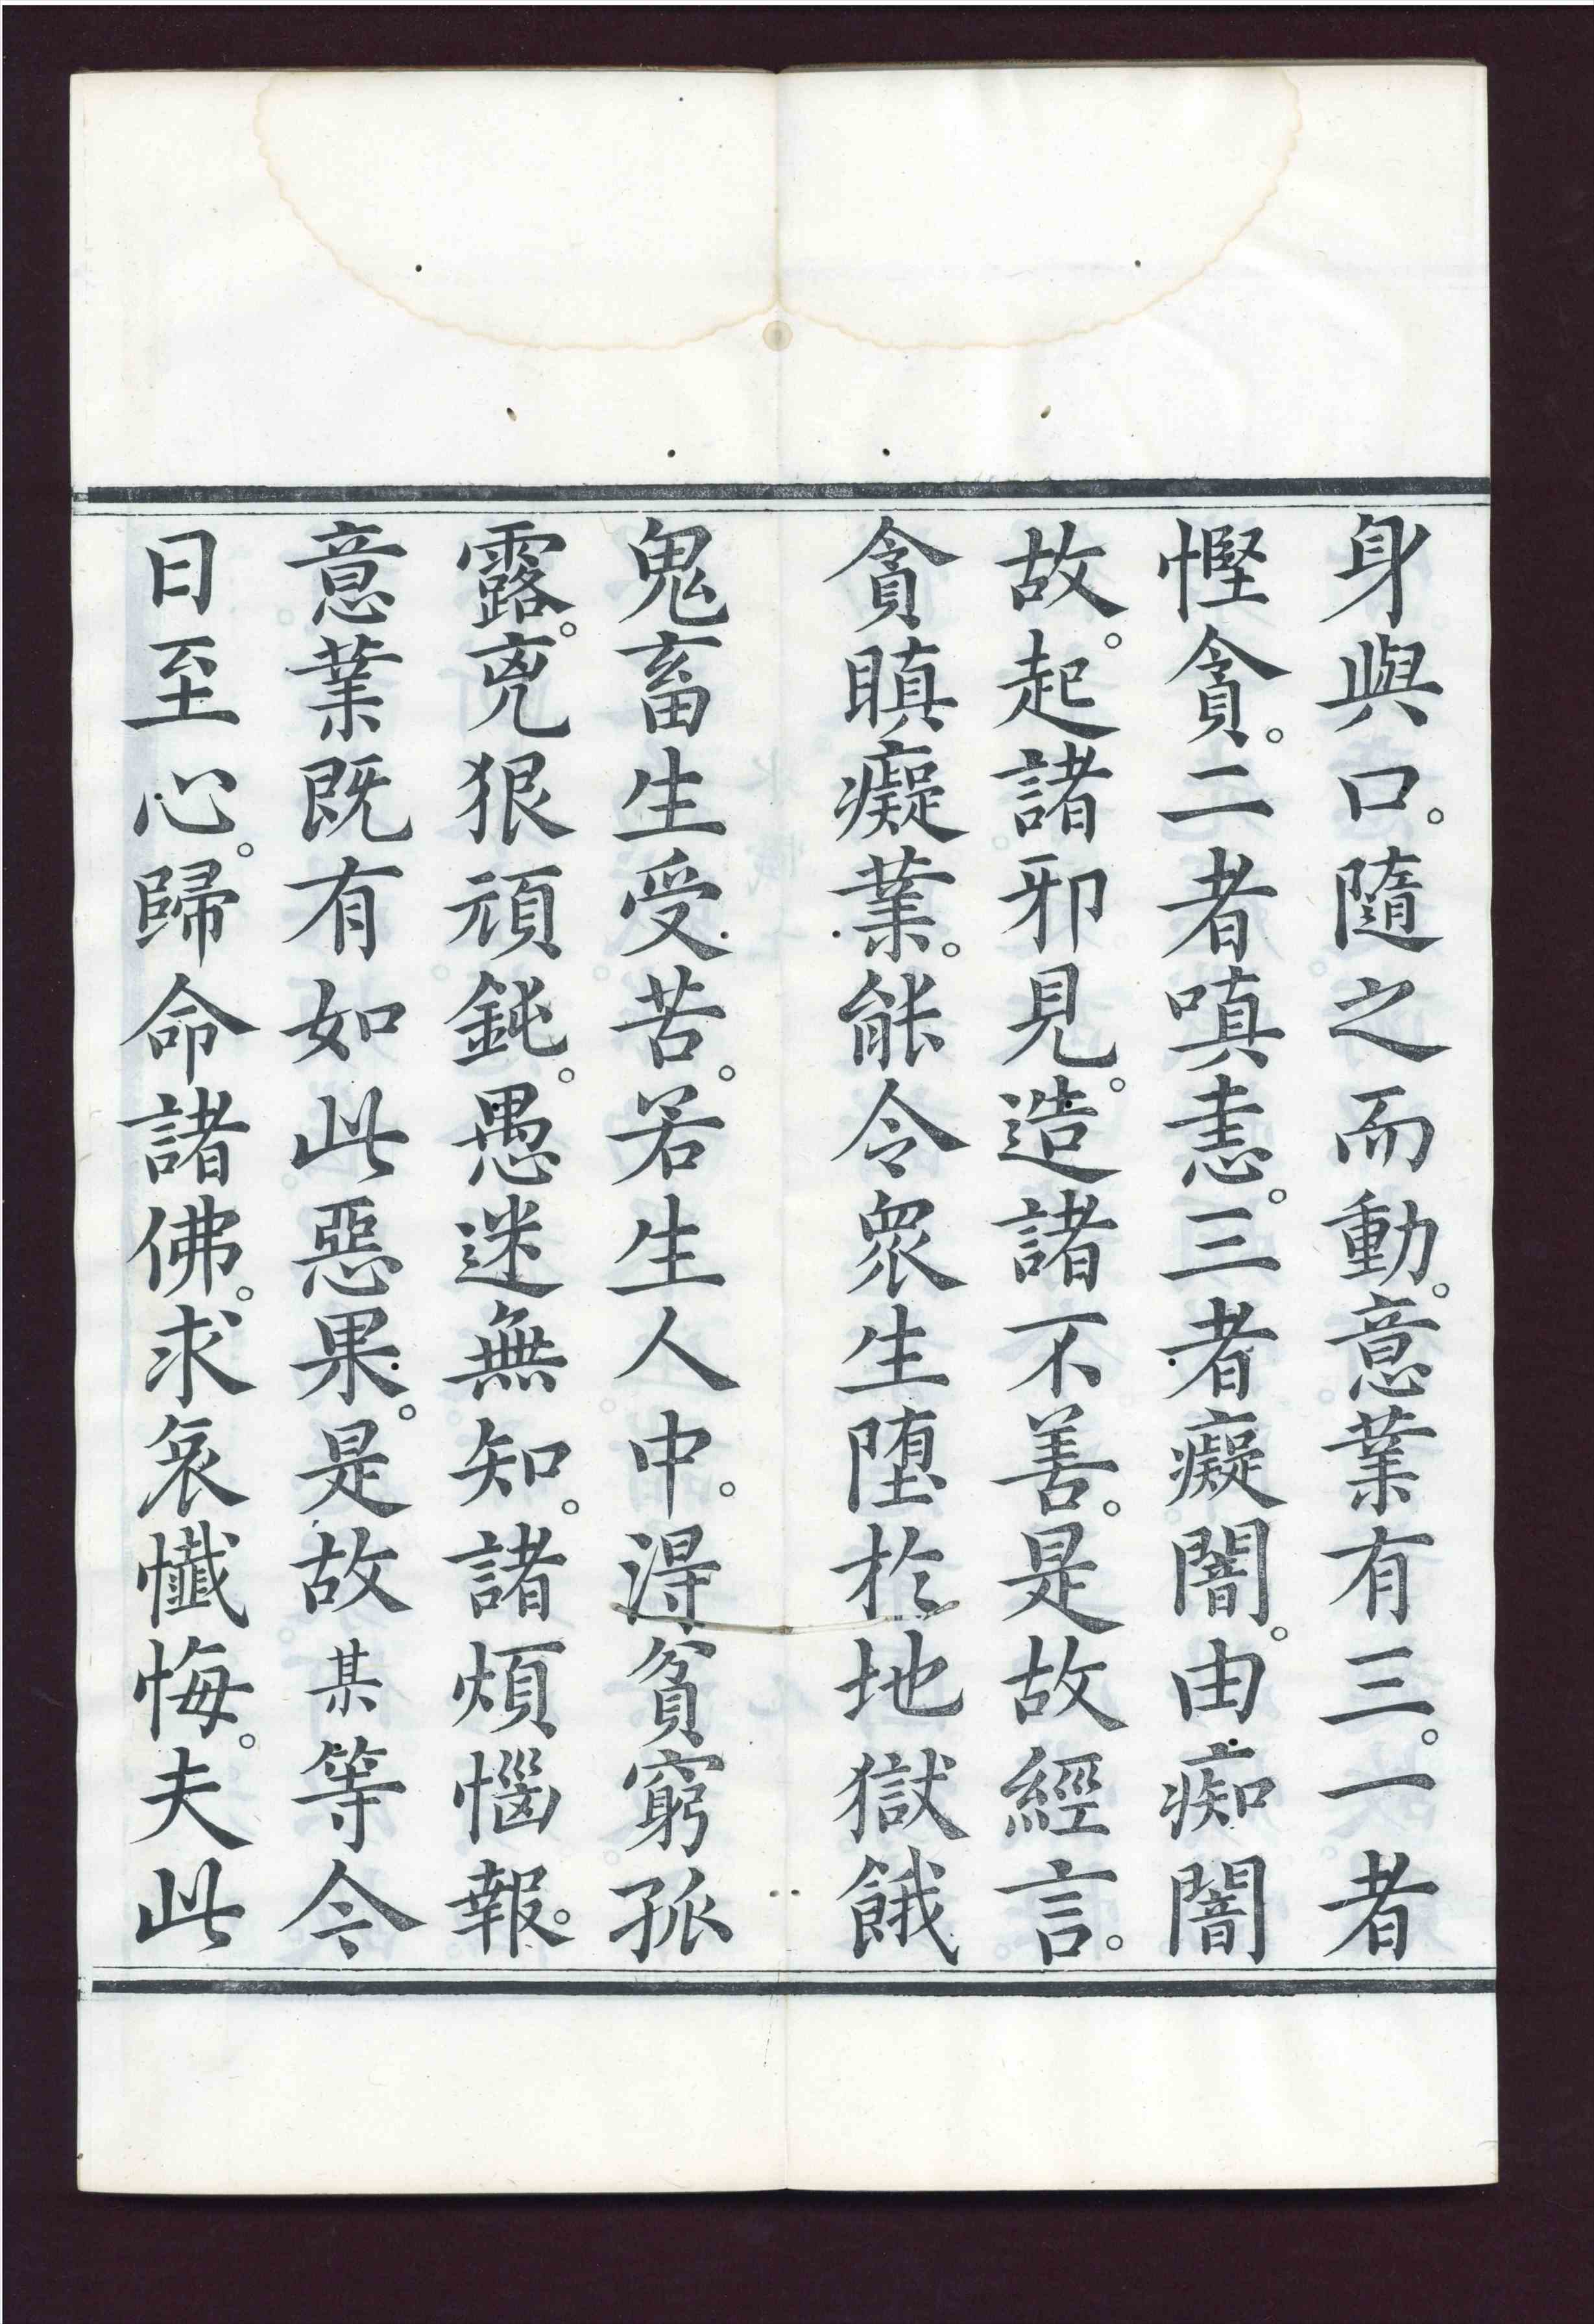 身與口。隨之而動。意業有三。一者
慳貪。二者嗔恚。三者癡闇。由痴闇
故。起諸邪見。造諸不善。是故經言。
貪瞋癡業。能令眾生墮於地獄餓
鬼畜生受苦。若生人中。得貧窮孤
露。兇狠頑鈍。愚迷無知。諸煩惱報。
意業既有如此惡果。是故某等今
日至心。歸命諸佛。求哀懺悔。夫此